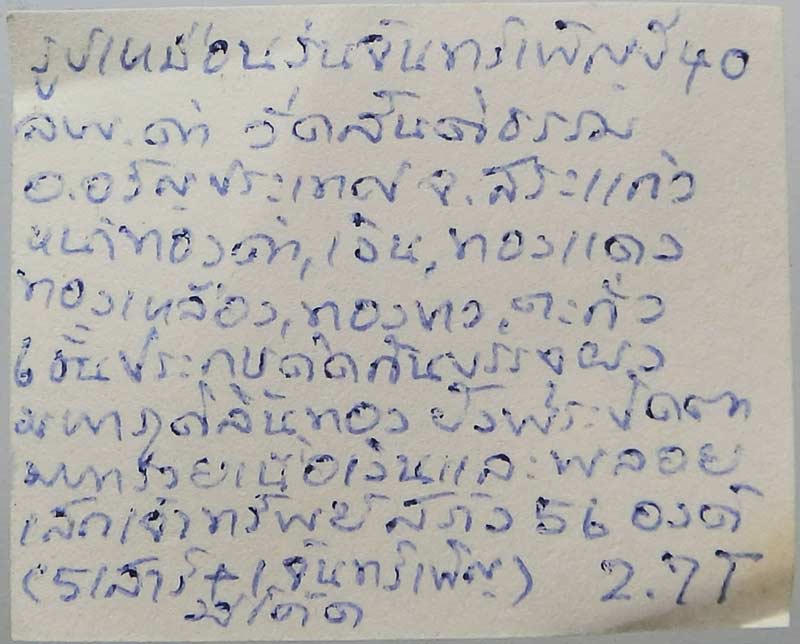 รูปเหมือนรุ่นจันทร์เพ็ญปี40
ลพ.ดำ วัดสันติธรรม
อ.อรัญประเทศ จ.สระแก้ว
หน้าทองคำ,เงิน,ทองแดง
ทองเหลือง,ทองขาว,ตะกั่ว
6ชิ้นประกบติดกันบรรจุผง
มหาภูติลิ้นทอง ฝังพระปิดตา
มหารวยเนื้อเงินและพลอย
เสกเข้าทรัพย์ สร้าง 56 องค์
(5เสาร์+1จันทร์เพ็ญ) 2.7T
มีโค้ด